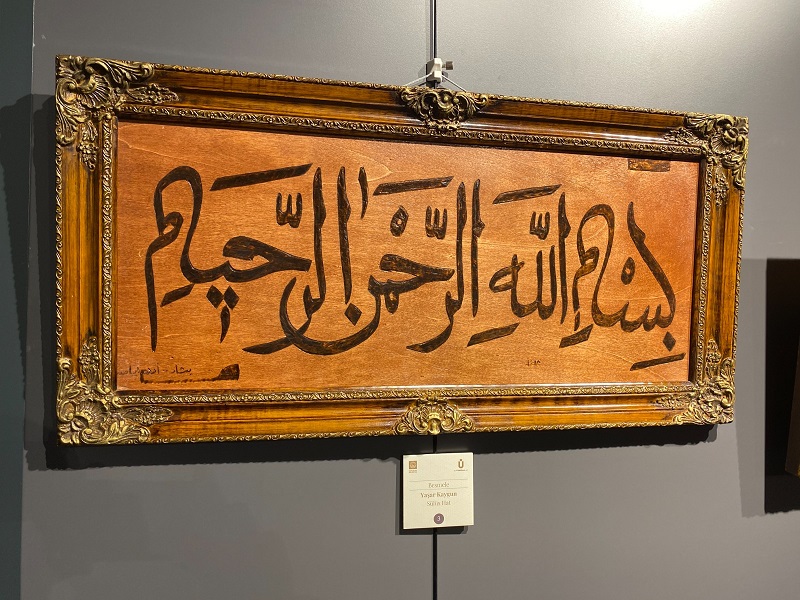 بِسْمِ اللَّهِ الرَّحْمٰنِ الرَّحِيمِ
Besmele
Yaşar Kaygun
Sülüs Hat